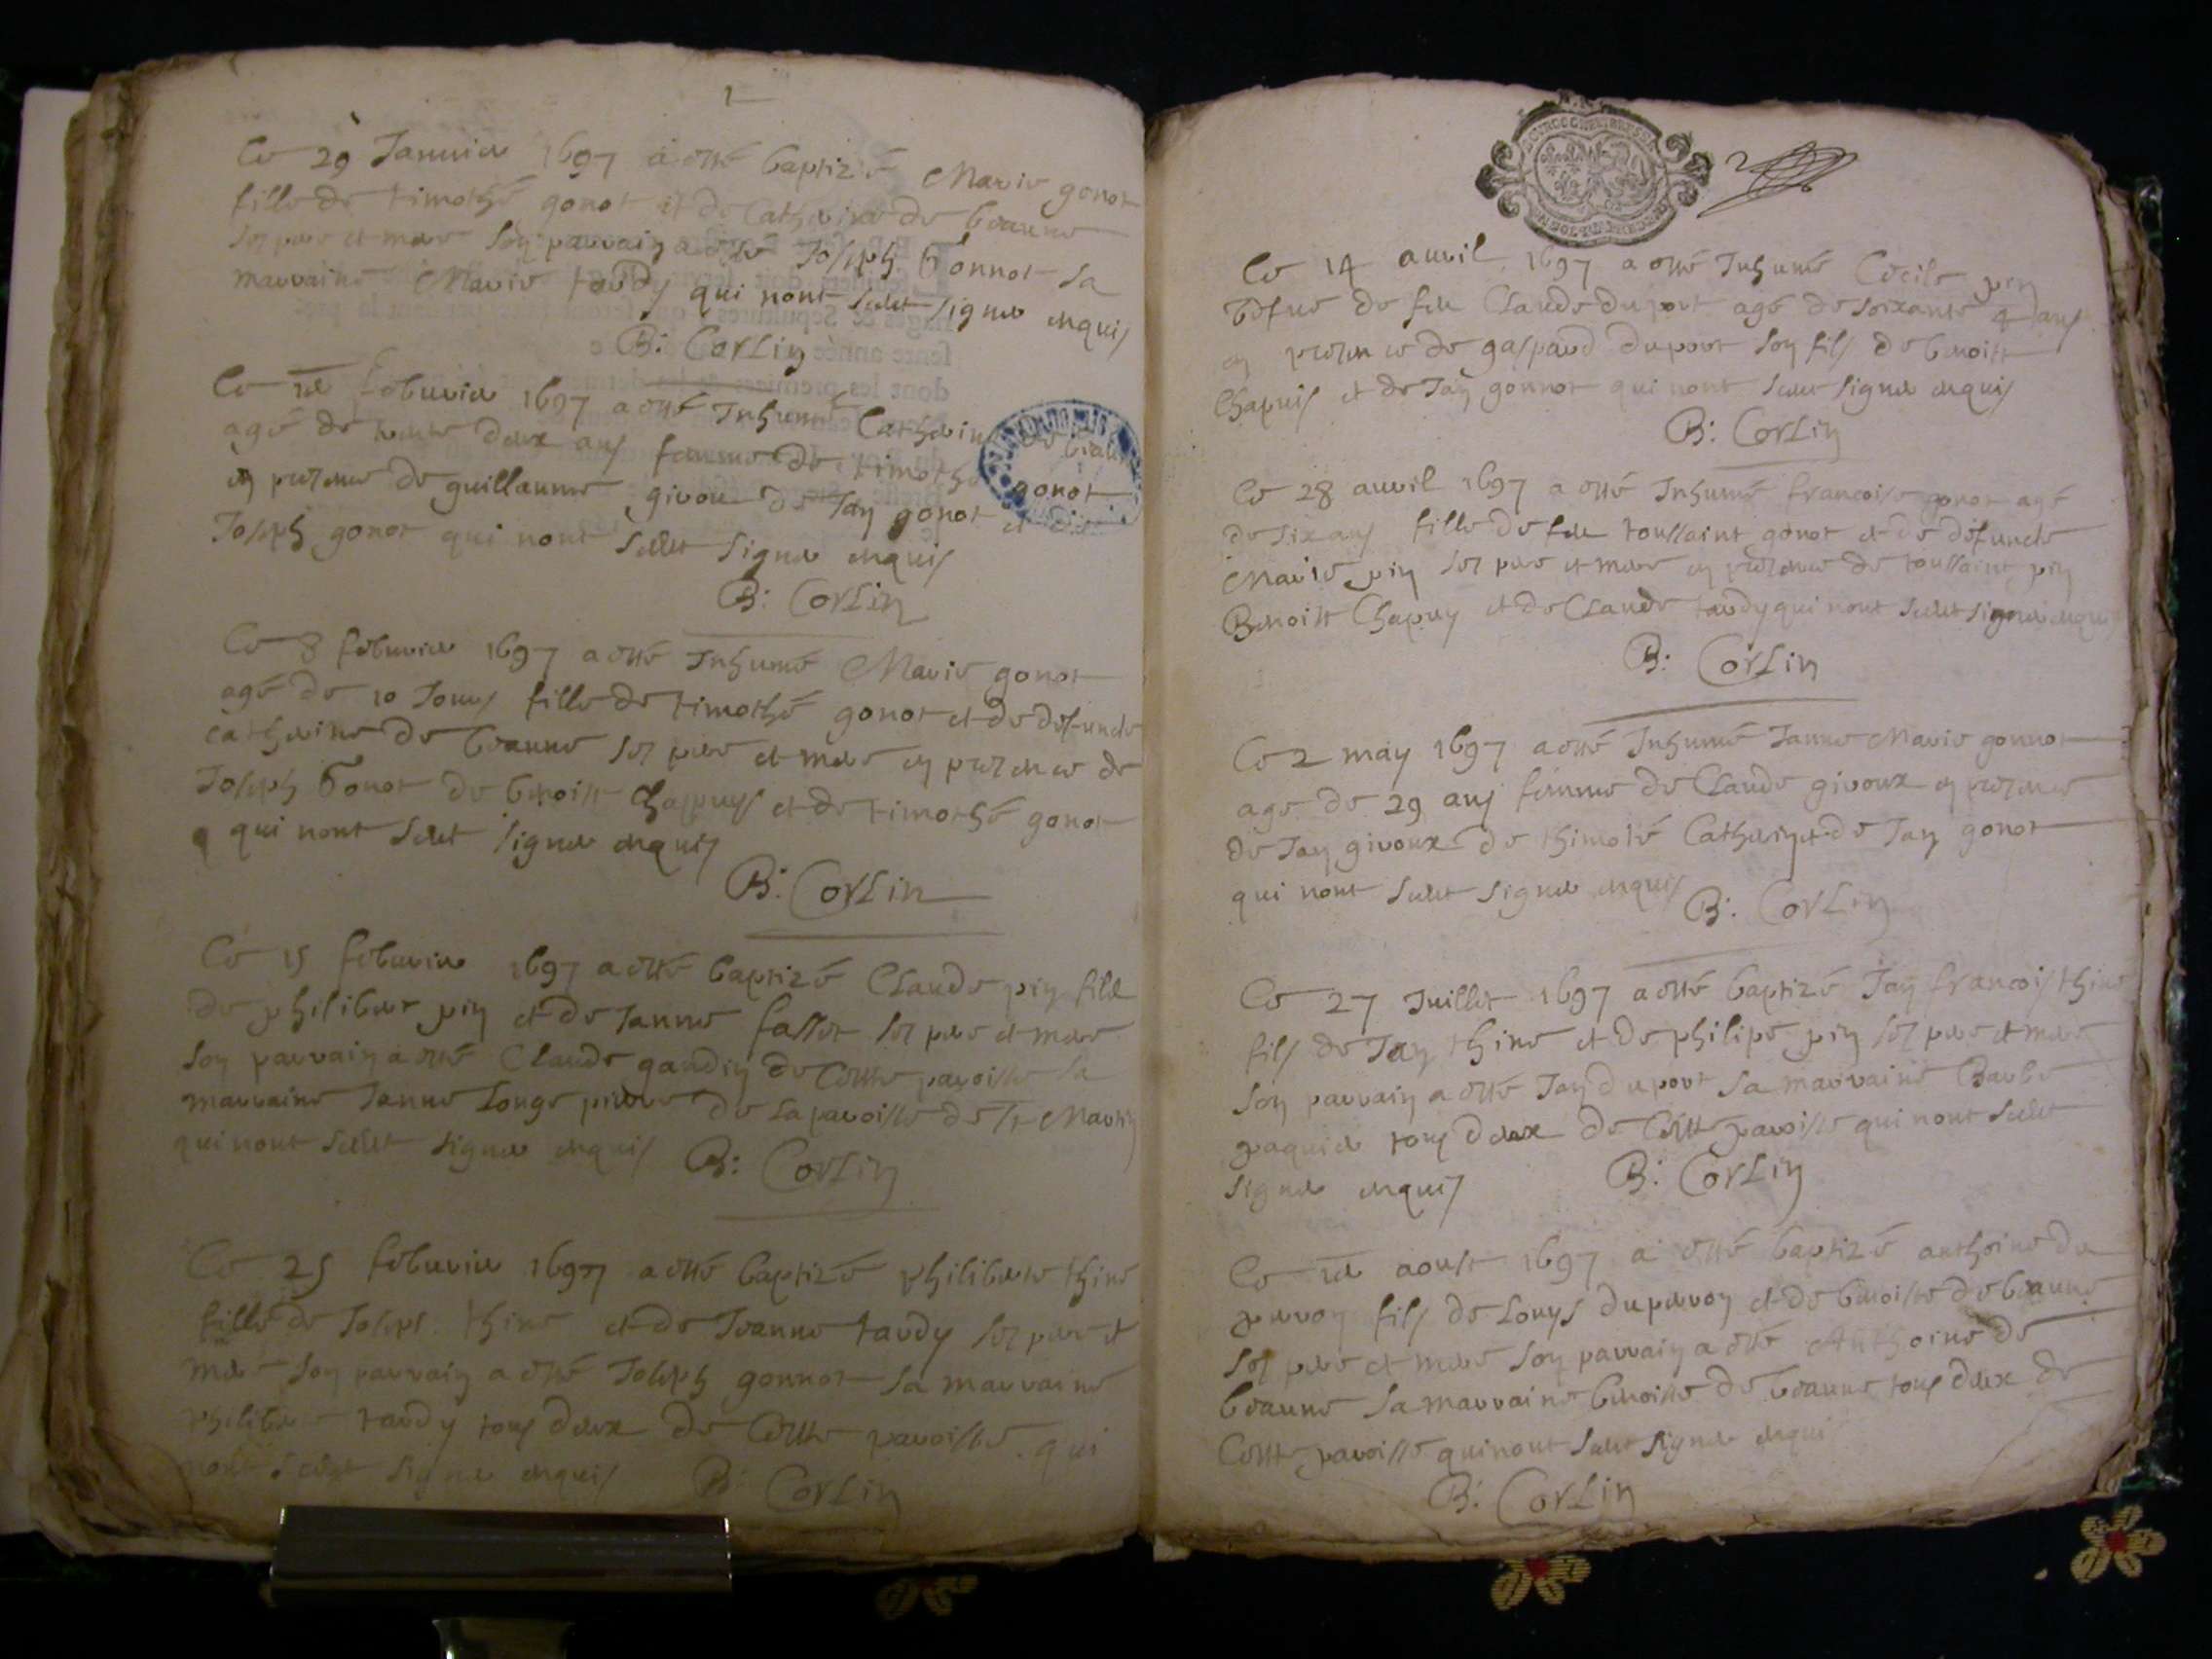 1
Ce 29 Januier 1697 a esté baptizé Marie gonot
fille de timothé gonot et de Catherine de beaune
ses pere et mere son parrain a esté Joseph Gonnot sa
marraine Marie tardy qui nont sceut signer enquis
B: Corlin
Ce 1er feburier 1697 a esté Inhumé Catherine de
agé de deux ans femme de timothé gonot
en presence de guillaume giroux de Jan gonot et de
Joseph gonot qui nont sceut signer enquis
B: Corlin
Ce 8 feburier 1697 a esté Inhumé Marie gonot
agé de 10 Jours fille de timothé gonot et de defuncte
Catherine de beaune ses pere et mere en presence de
Joseph Gonot de benoist Chapuys et de timothé gonot
qui nont sceut signer enquis
B: Corlin
Ce 15 feburier 1697 a esté baptizé Claude pin fille
de philibert pin et de Janne fassot ses pere et mere
son parrain a esté Claude gaudin de Cette paroisse sa
marraine Janne Longe pierre de la paroisse de st Martin
qui nont sceut signer enquis B: Corlin
Ce 25 feburier 1697 a esté baptizé philiberte thine
fille de Joseph thine et de Jeanne tardy ses pere et
mere son parrain a esté Joseph gonnot sa marraine
philiberte tardy tous deux de Cette paroisse qui
nont sceut signer enquis B: Corlin
BOURGOGNE BRESSE
Ce 14 auril 1697 a esté Inhumé Cecile pin
Vefue de feu Claude duport agé de soixante 4 ans
en presence de gaspard duport son fils de benoist
Chapuis et de Jan gonnot qui nont sceut signer enquis
B: Corlin
Ce 28 auril 1697 a esté Inhumé francoise gonot agé
de six ans fille de feu toussaint gonot et de defuncte
Marie pin ses pere et mere en presence de toussaint pin
Benoist Chapuy et de Claude tardy qui nont sceut signer enquis
B: Corlin
Ce 2 may 1697 a esté Inhumé Janne Marie gonnot
agé de 29 ans femme de Claude giroux en presence
de Jan giroux de thimoté Catherin et de Jan gonot
qui nont sceut signer enquis B: Corlin
Ce 27 Juillet 1697 a esté baptizé Jan francois thine
fils de Jan thine et de philipe pin ses pere et mere
son parrain a esté Jan duport sa marraine Barbe
paquier tous deux de Cette paroisse qui nont sceut
signer enquis B: Corlin
Ce 1er aoust 1697 a esté baptizé anthoine du
perron fils de Louys duperron et de benoiste de beaune
ses pere et mere son parrain a esté Anthoine de
beaune sa marraine benoiste de beaune tous deux de
Cette paroisse qui nont sceut signer enqui
B: Corlin